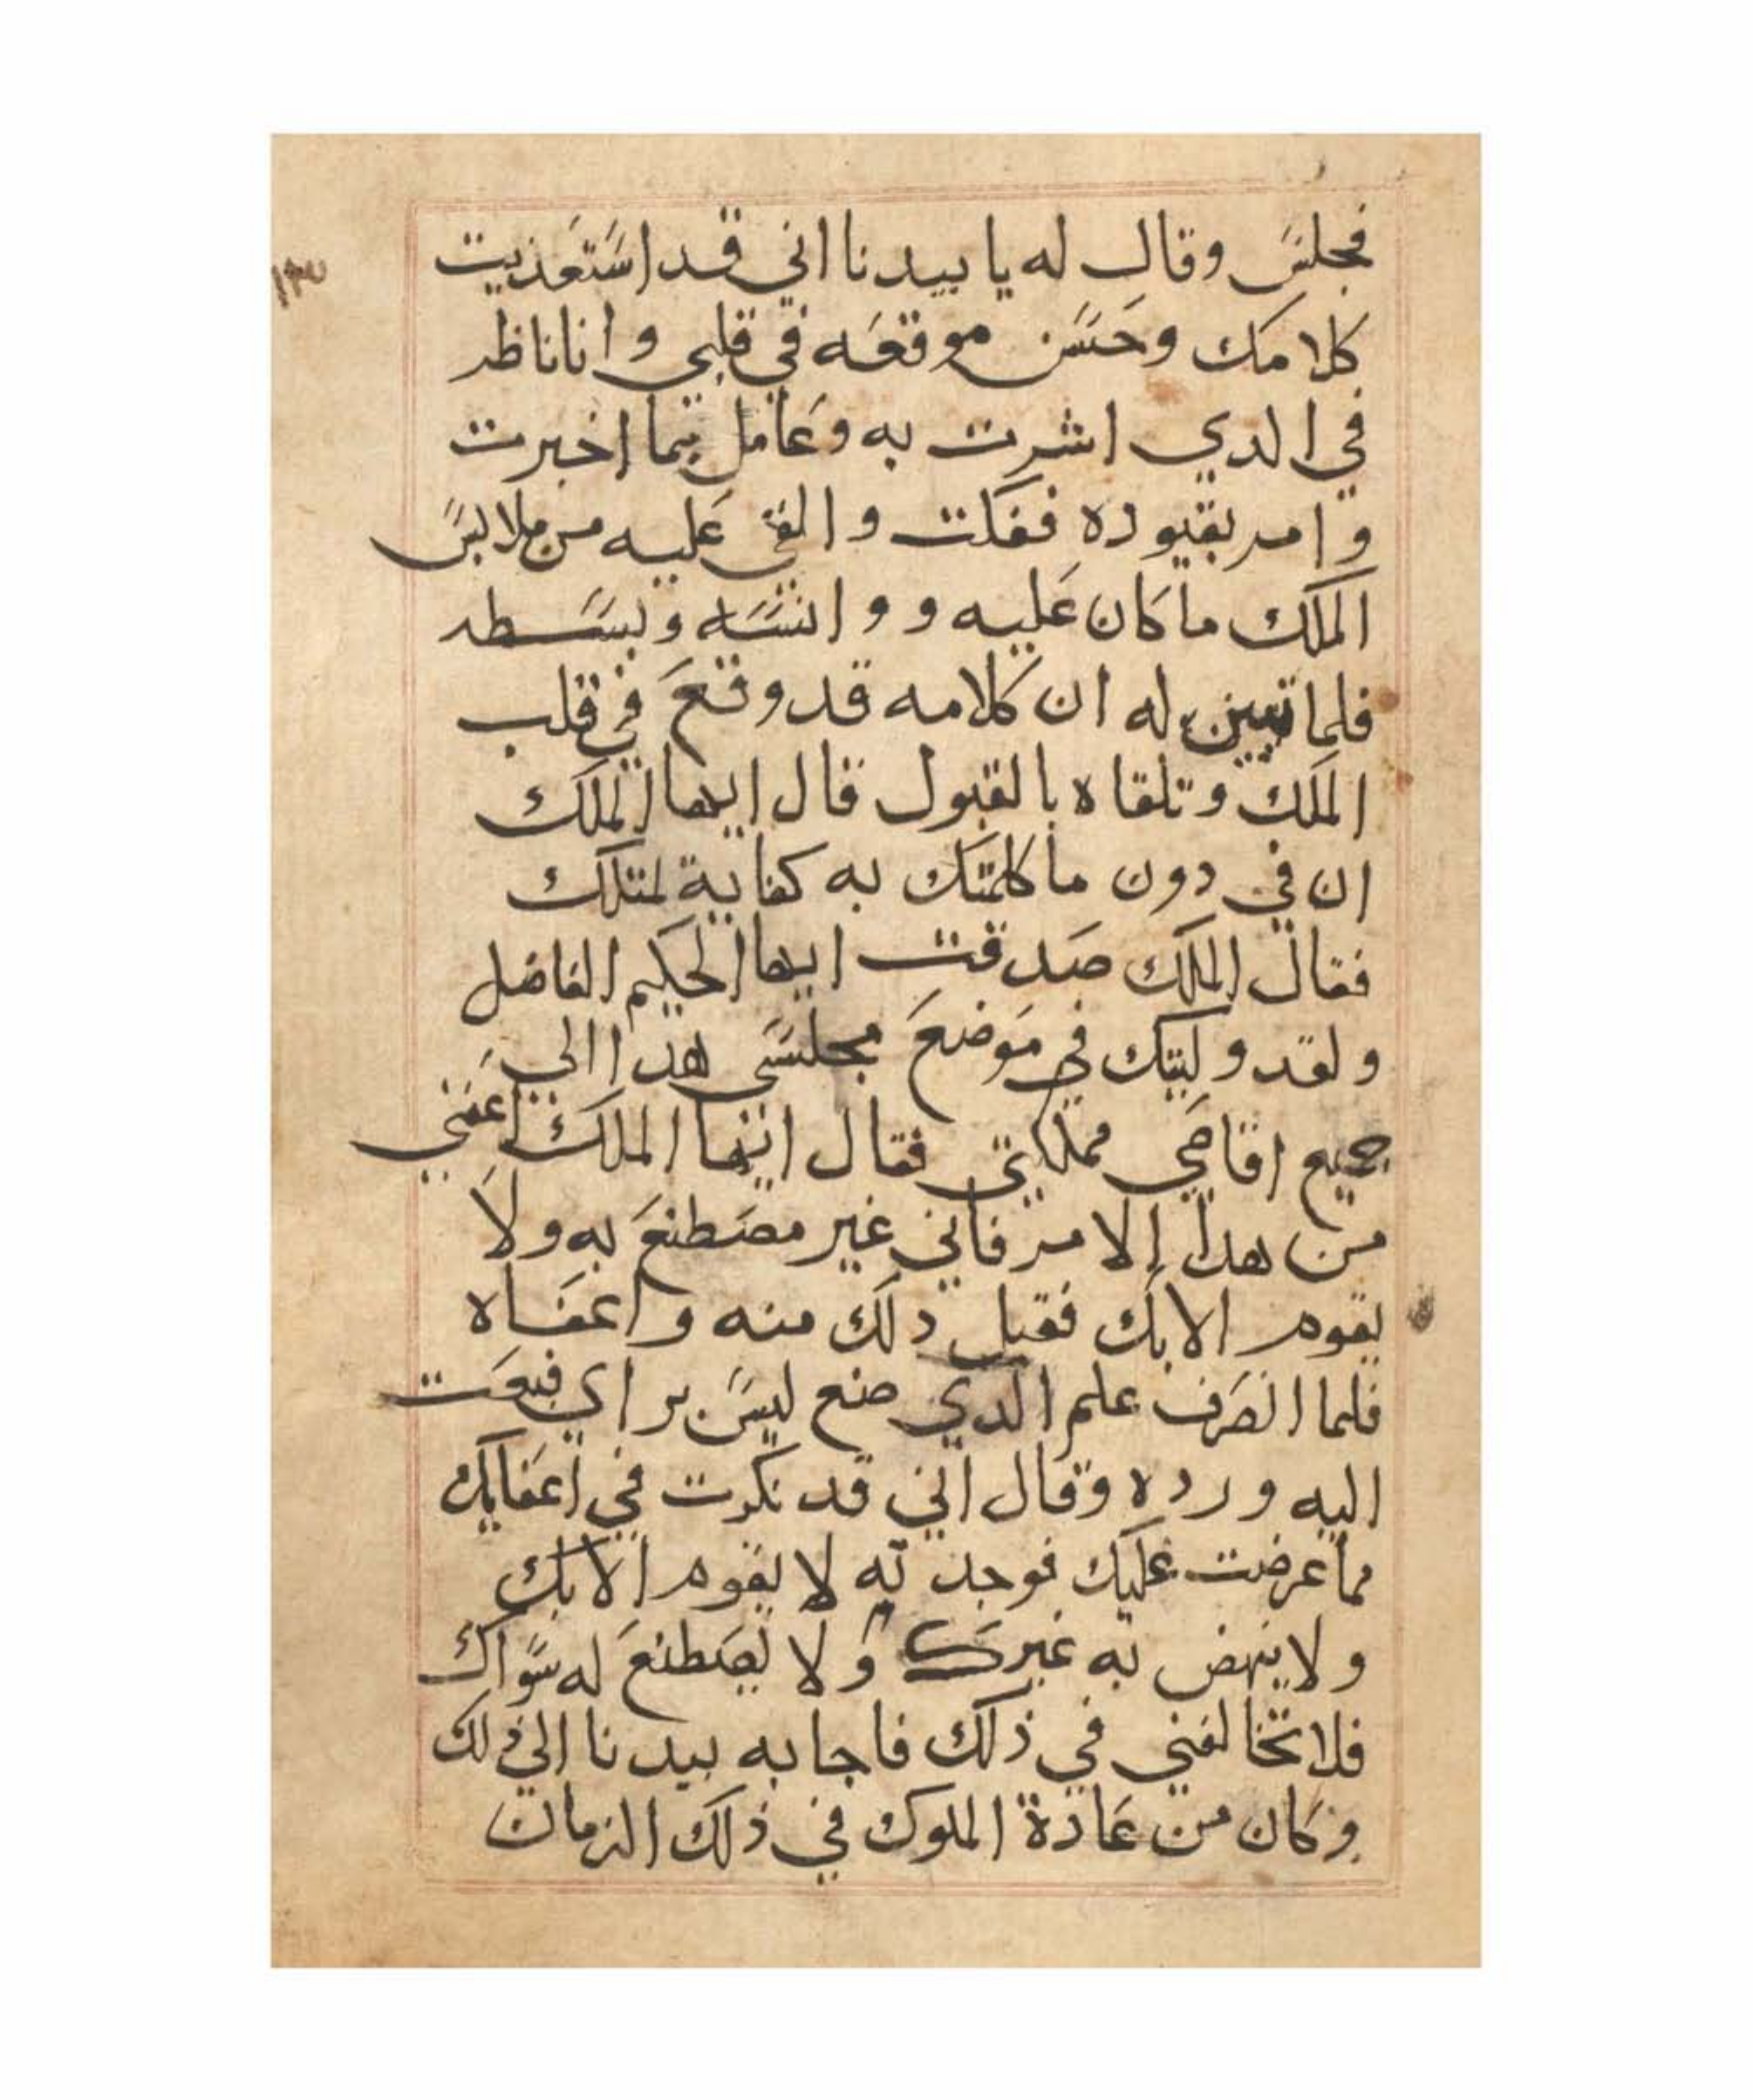 فجلس وقال له يا بيدنا اني قد استعذيت
كلامك وحسن موقعه في قلبي وانا ناظر
في الدي اشرت به وعامل بما اخبرت
وامر بقيوده ففكت والقي عليه من ملابس
الملك ما كان عليه و وانسه وبسطه
فلما تبين له ان كلامه قد وقع في قلب
الملك وتلقاه بالقبول قال ايها الملك
ان في دون ما كلمتك به كفاية لمتلك
فقال الملك صدقت ايها الحكيم الفاضل
ولقد وليتك في موضع مجلسي هدا الي
جميع اقاصي مملكتي فقال ايها الملك اعفني
من هدا الامر فاني غير مصطنع به ولا
يقوم الا بك فقبل دلك منه واعفاه
فلما انصرف علم الدي صنع ليس براي فبعت
اليه ورده وقال اني قد نكرت في اعفايك
مما عرضت عليك فوجدته لا يقوم الا بك
ولا ينهض به غيرك ولا يصطنع له سواك
فلا تخالفني في ذلك فاجابه بيدنا الي ذلك
وكان من عادة الملوك في ذلك الزمان